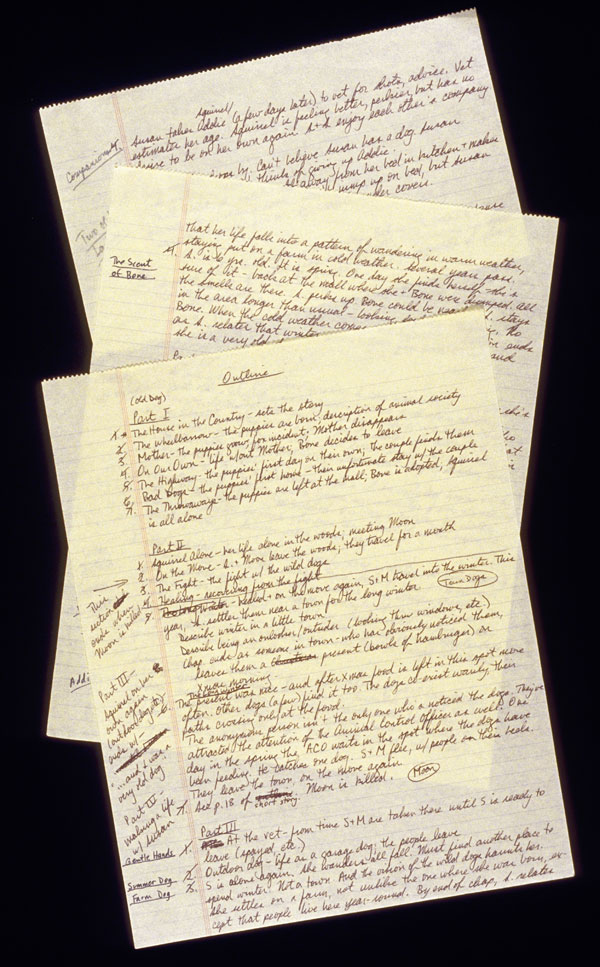 Squirrel
Susan takes Addie (a few days later) to vet for shots, advice. Vet
estimates her age. Squirrel is feeling better, perkier, but has no
desire to be on her own again. S + S enjoy each other's company
Companions
by. Can't believe Susan has a dog. Susan
thinks of giving up Addie.
away from her bed in kitchen + makes
jump up on bed, but Susan
under covers.
Two
that her life falls into a pattern of wandering in warm weather,
staying put on a farm in cold weather. Several years pass.
The Scout
of Bone
7. S. is 6 yrs. old. It is spring. One day she finds herself - she's
sure of it - back at the mall where she + Bone were
the smells are there. S. perks up. Bone could be near
in the area longer than usual - looking,
Bone. When the cold weather comes
as S. relates that winter
she is a very old
Outline
(Old Dog)
Part I
1. The House in the Country - sets the story
2. The Wheelbarrow - the puppies are born; description of animal society
3. Mother - the puppies grow; fox incident; Mother disappears
4. On Our Own - life w/out Mother; Bone decides to leave
5. The Highway - the puppies' first day on their own; the couple finds them
6. Bad Dogs - the puppies' first home - their unfortunate stay w/ the couple
7. The Throwaways - the puppies are left at the mall; Bone is adopted, Squirrel
is all alone
Part II
1. Squirrel Alone - her life alone in the woods; meeting Moon
2. On the Move - S. + Moon leave the woods; they travel for a month
3. The Fight - the fight w/ the wild dogs
4. Healing - recovering from the fight
Town Dogs
5. Winter - healed - on the move again, S + M travel into the winter. This
year, S. settles them near a town for the long winter
Describe winter in a little town.
Describe being an onlooker/outsider (looking thru windows, etc.)
Chap. ends as someone in town - who has obviously noticed them,
leaves them a present (bowls of hamburger) on
Xmas morning
This
section
ends when
Moon is killed
6. The present was nice - and after Xmas food is left in this spot more
often. Other dogs (a few) find it too. The dogs co-exist warily, their
paths crossing only at the food.
The anonymous person isn't the only one who's noticed the dogs. They've
attracted the attention of the Animal Control Officer as well. One
day in the spring the ACO waits in the spot where the dogs have
been feeding. He catches one dog. S + M flee, w/ people on their heels.
They leave the town, on the move again.
Moon
7. See p. 18 of short story. Moon is killed.
Part III -
Squirrel on her
own again
(outdoor dog, etc.)
ends w/ -
"...and I was a
very old dog."
Part IV -
making a life
w/ Susan
Part III
Gentle Hands
1. At the vet - from time S + M are taken there until S is ready to
leave (spayed, etc.)
Summer Dog
2. Outdoor dog - life as a garage dog; the people leave
Farm Dog
3. S is alone again. She wanders all fall. Must find another place to
spend winter. Not a town. And the vision of the wild dogs haunts her.
She settles on a farm, not unlike the one where she was born, ex-
cept that people live here year-round. By end of chap, S. relates